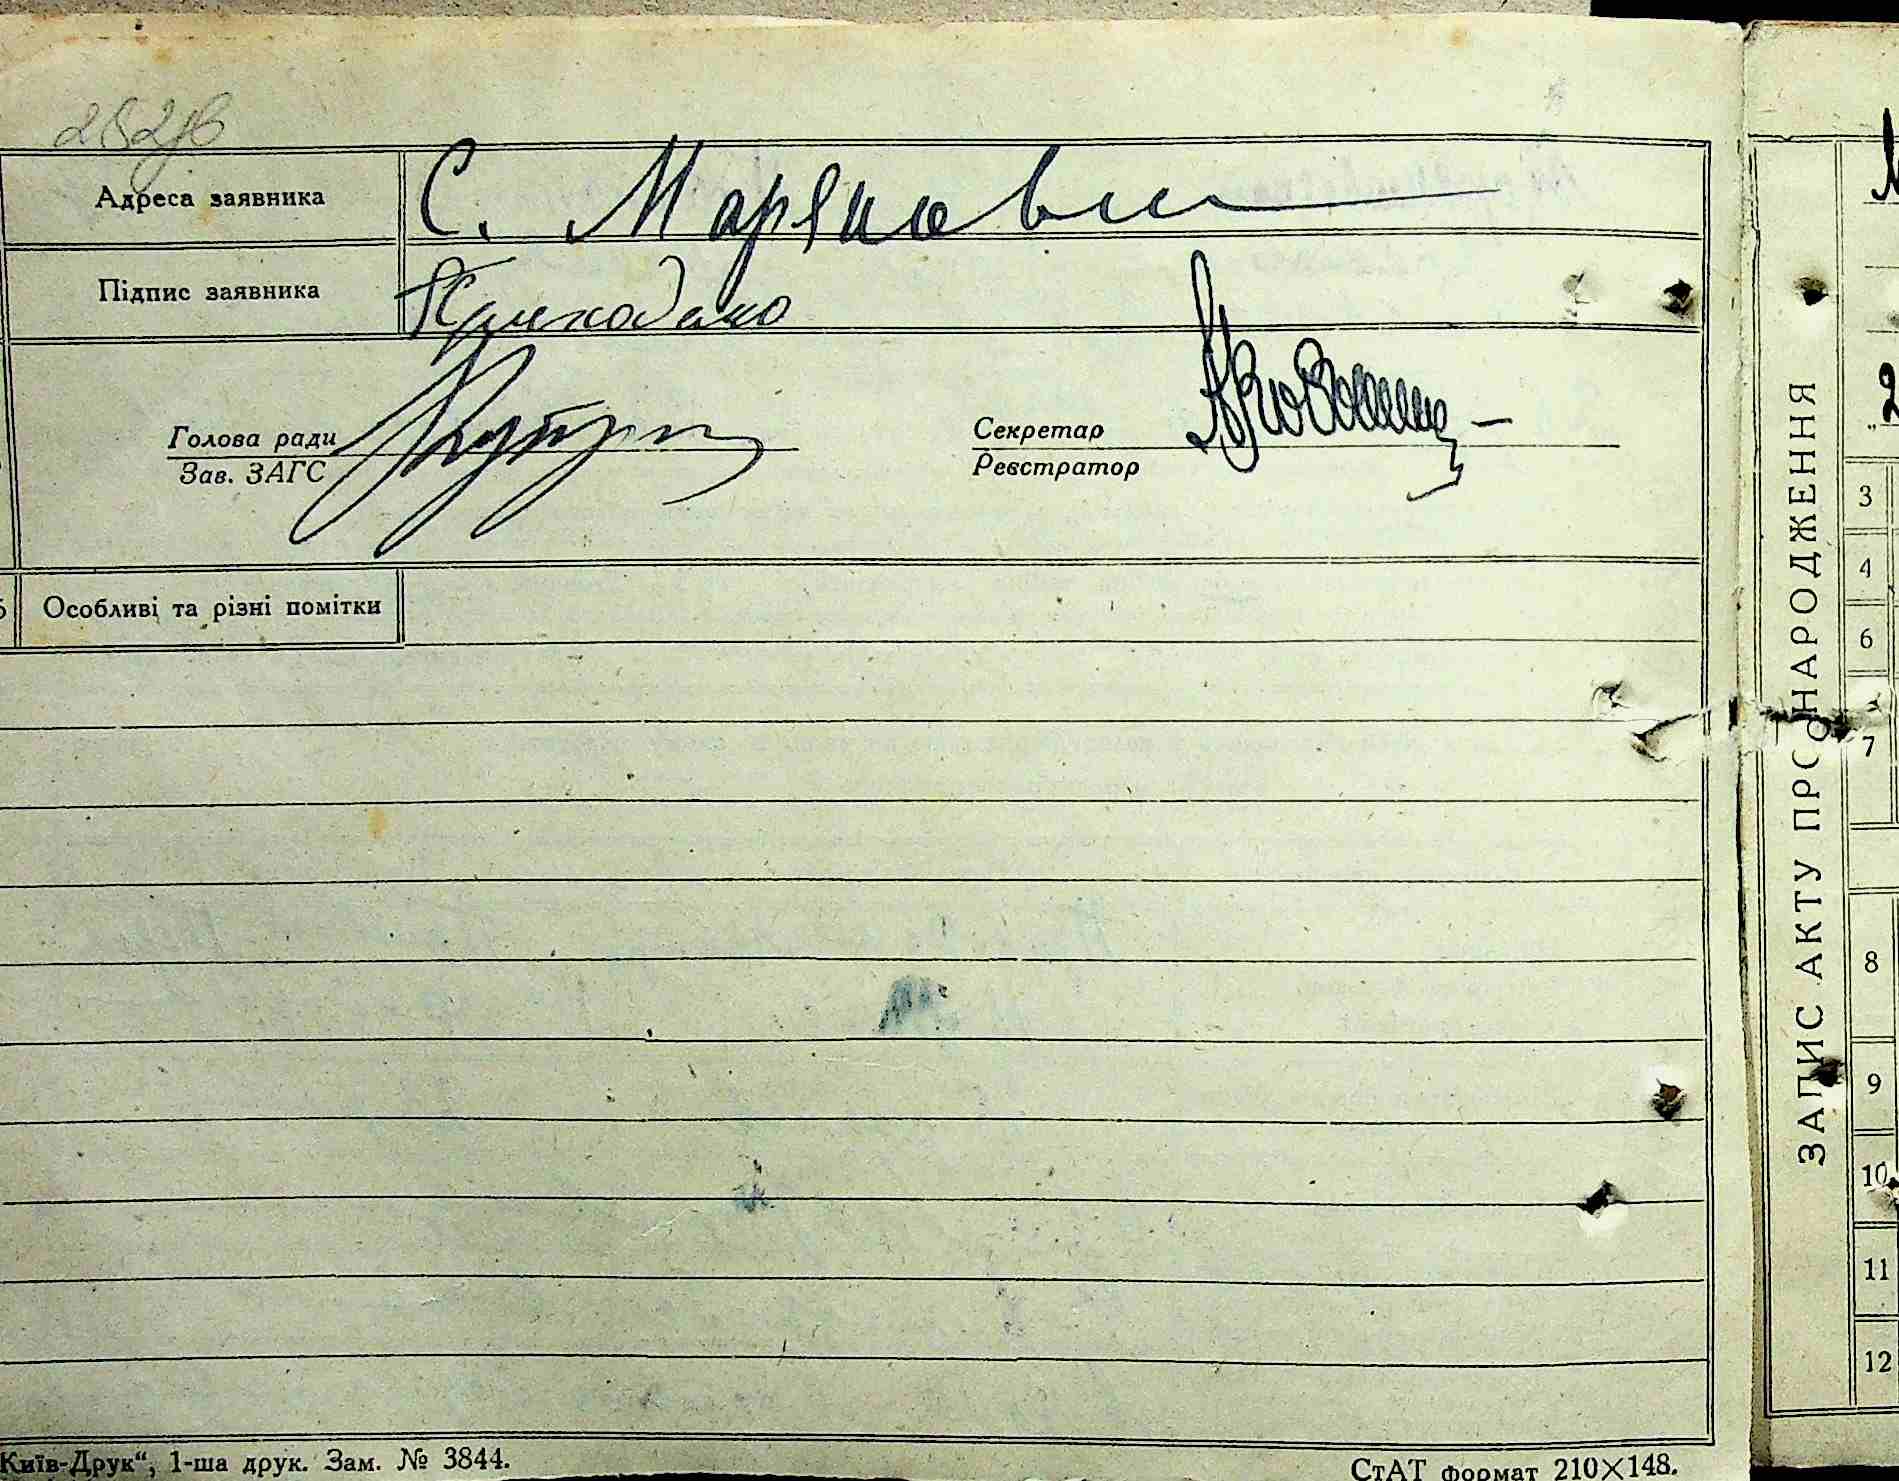 Адреса заявника С. Мар'яновка
Підпис заявника Приходько
Голова ради
Зав. ЗАГС
Секретар
Реєстратор
Особливі та різні помітки
Київ-Друк“, 1-ша друк. Зам. № 3844.
СтАТ формат 210×148.
ЗАПИС АКТУ ПРО НАРОДЖЕННЯ
3
4
6
7
8
9
10
11
12